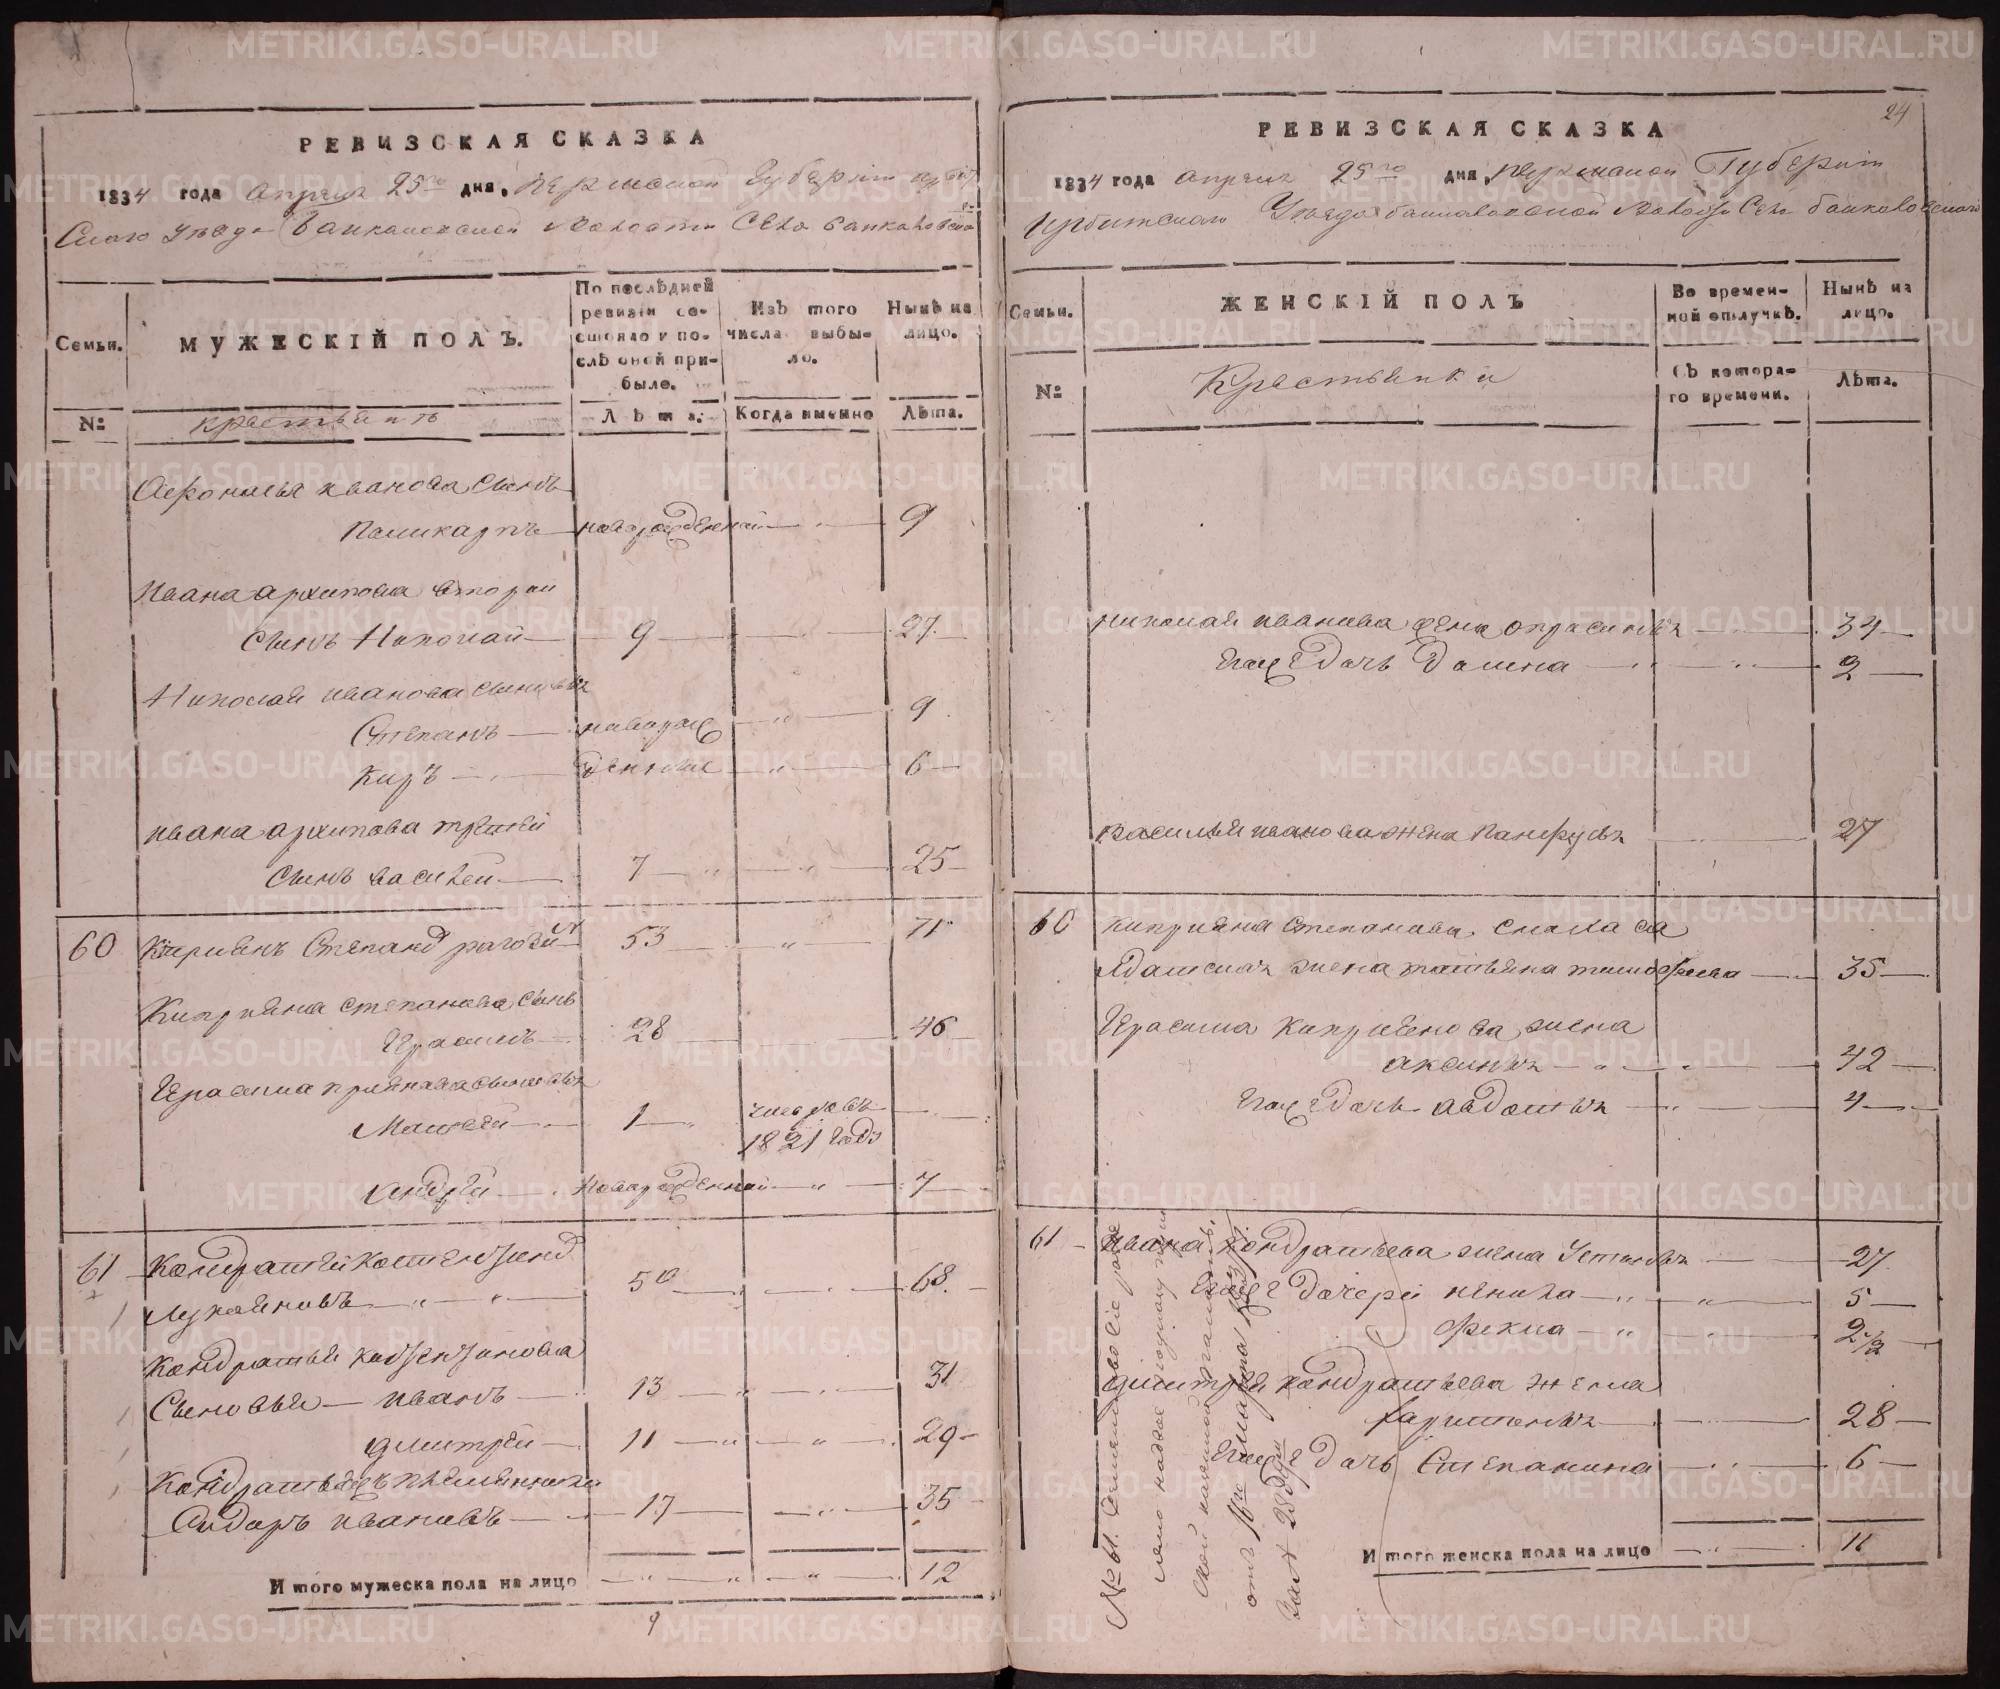 РЕВИЗСКАЯ СКАЗКА
1834 года апреля 25го дня, пермской Губернiи ирбит
Скаго уезда баикаловской волости Села баикаловска
Семьи.
МУЖЕСКIЙ ПОЛЪ.
По послѣдней ревизiи состояло и послѣ оной прибыло.
Изъ того числа выбыло.
Нынѣ на лицо.
№
крестьянъ
Лѣта.
Когда именно
Лѣта.
Афонасья иванова сынъ
Поликарпъ новорожденной 9
Ивана архипова второй
сынъ Николай 9 27.
Николая иванова сыновья
Степанъ новорож 9
киръ денные 6
ивана архипова третей
Сынъ василей 7 25
60 Киприянъ Степанд 53 71
Киприяна степанова сынъ
Ерасимъ 28 46
Ерасима приянова сыновья
Матвей 1 умеръ въ
1821 годе
андрей Новорожденной 7
61 Кондратей костентинд
Лукояновъ 50 68.
Кондратья костентинова
Сыновья иванъ 13 31
дмитрей 11 29
Кондратьевъ племянники
Сидоръ ивановъ 17 35
Итого мужеска пола на лицо 12
9
24
РЕВИЗСКАЯ СКАЗКА
1834 года апреля 25го дня, пермской Губернiи
Ирбитскаго Уезда баикаловской волости Села баикаловскаго
Семьи.
ЖЕНСКIЙ ПОЛЪ
Во временной отлучкѣ.
Нынѣ на лицо.
№
Крестьянки
Съ котораго времени.
Лѣта.
николая иванова жена опросинья 34
Ево же дочь Домна 2
василья иванова жена Панфусья 27
60 киприяна Степанова. Снаха
жена татьяна тимофеева 35
Ерасима Киприянова жена
аксинья 42
Ево же дочь авдотья 4
61 Ивана Кондратьева жена Устинья 27
Ево же дочери ненила 5
Фекла 2 1/2
дмитрея кондратьева жена
харитинья 28
Ево же дочь Степанида 6
Итого женска пола на лицо 11
№ 61.
METRIKI.GASO-URAL.RU